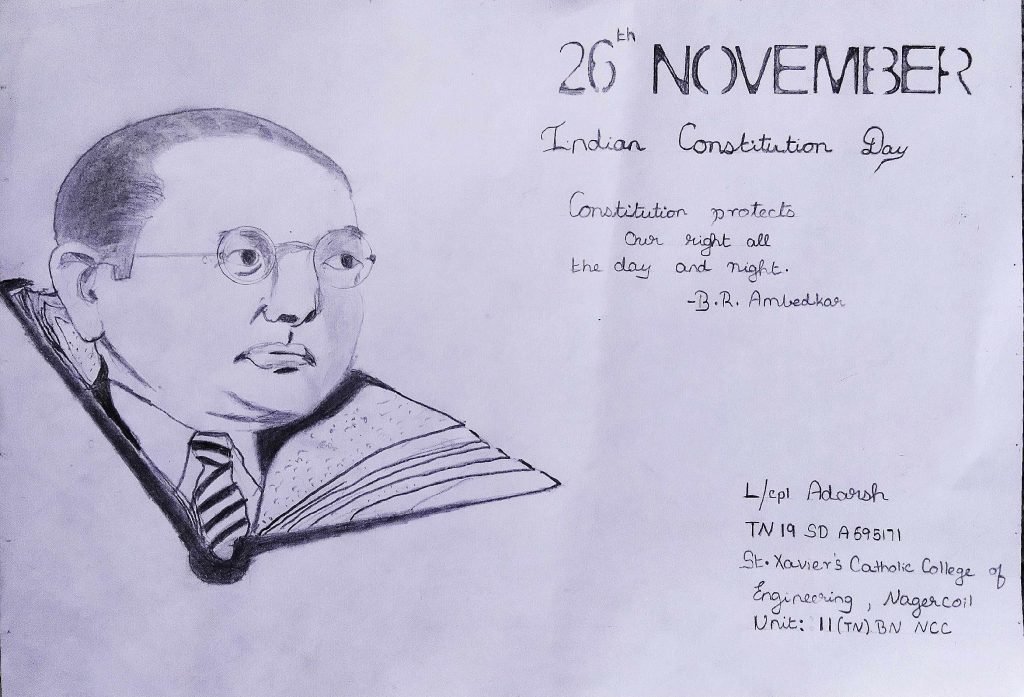 26th NOVEMBER
Indian Constitution Day
Constitution protects
Our right all
the day and night.
-B.R. Ambedkar
L/cpl Adarsh
TN 19 SD A 595171
St. Xavier's Catholic College of
Engineering, Nagercoil
Unit: 11(TN) BN NCC